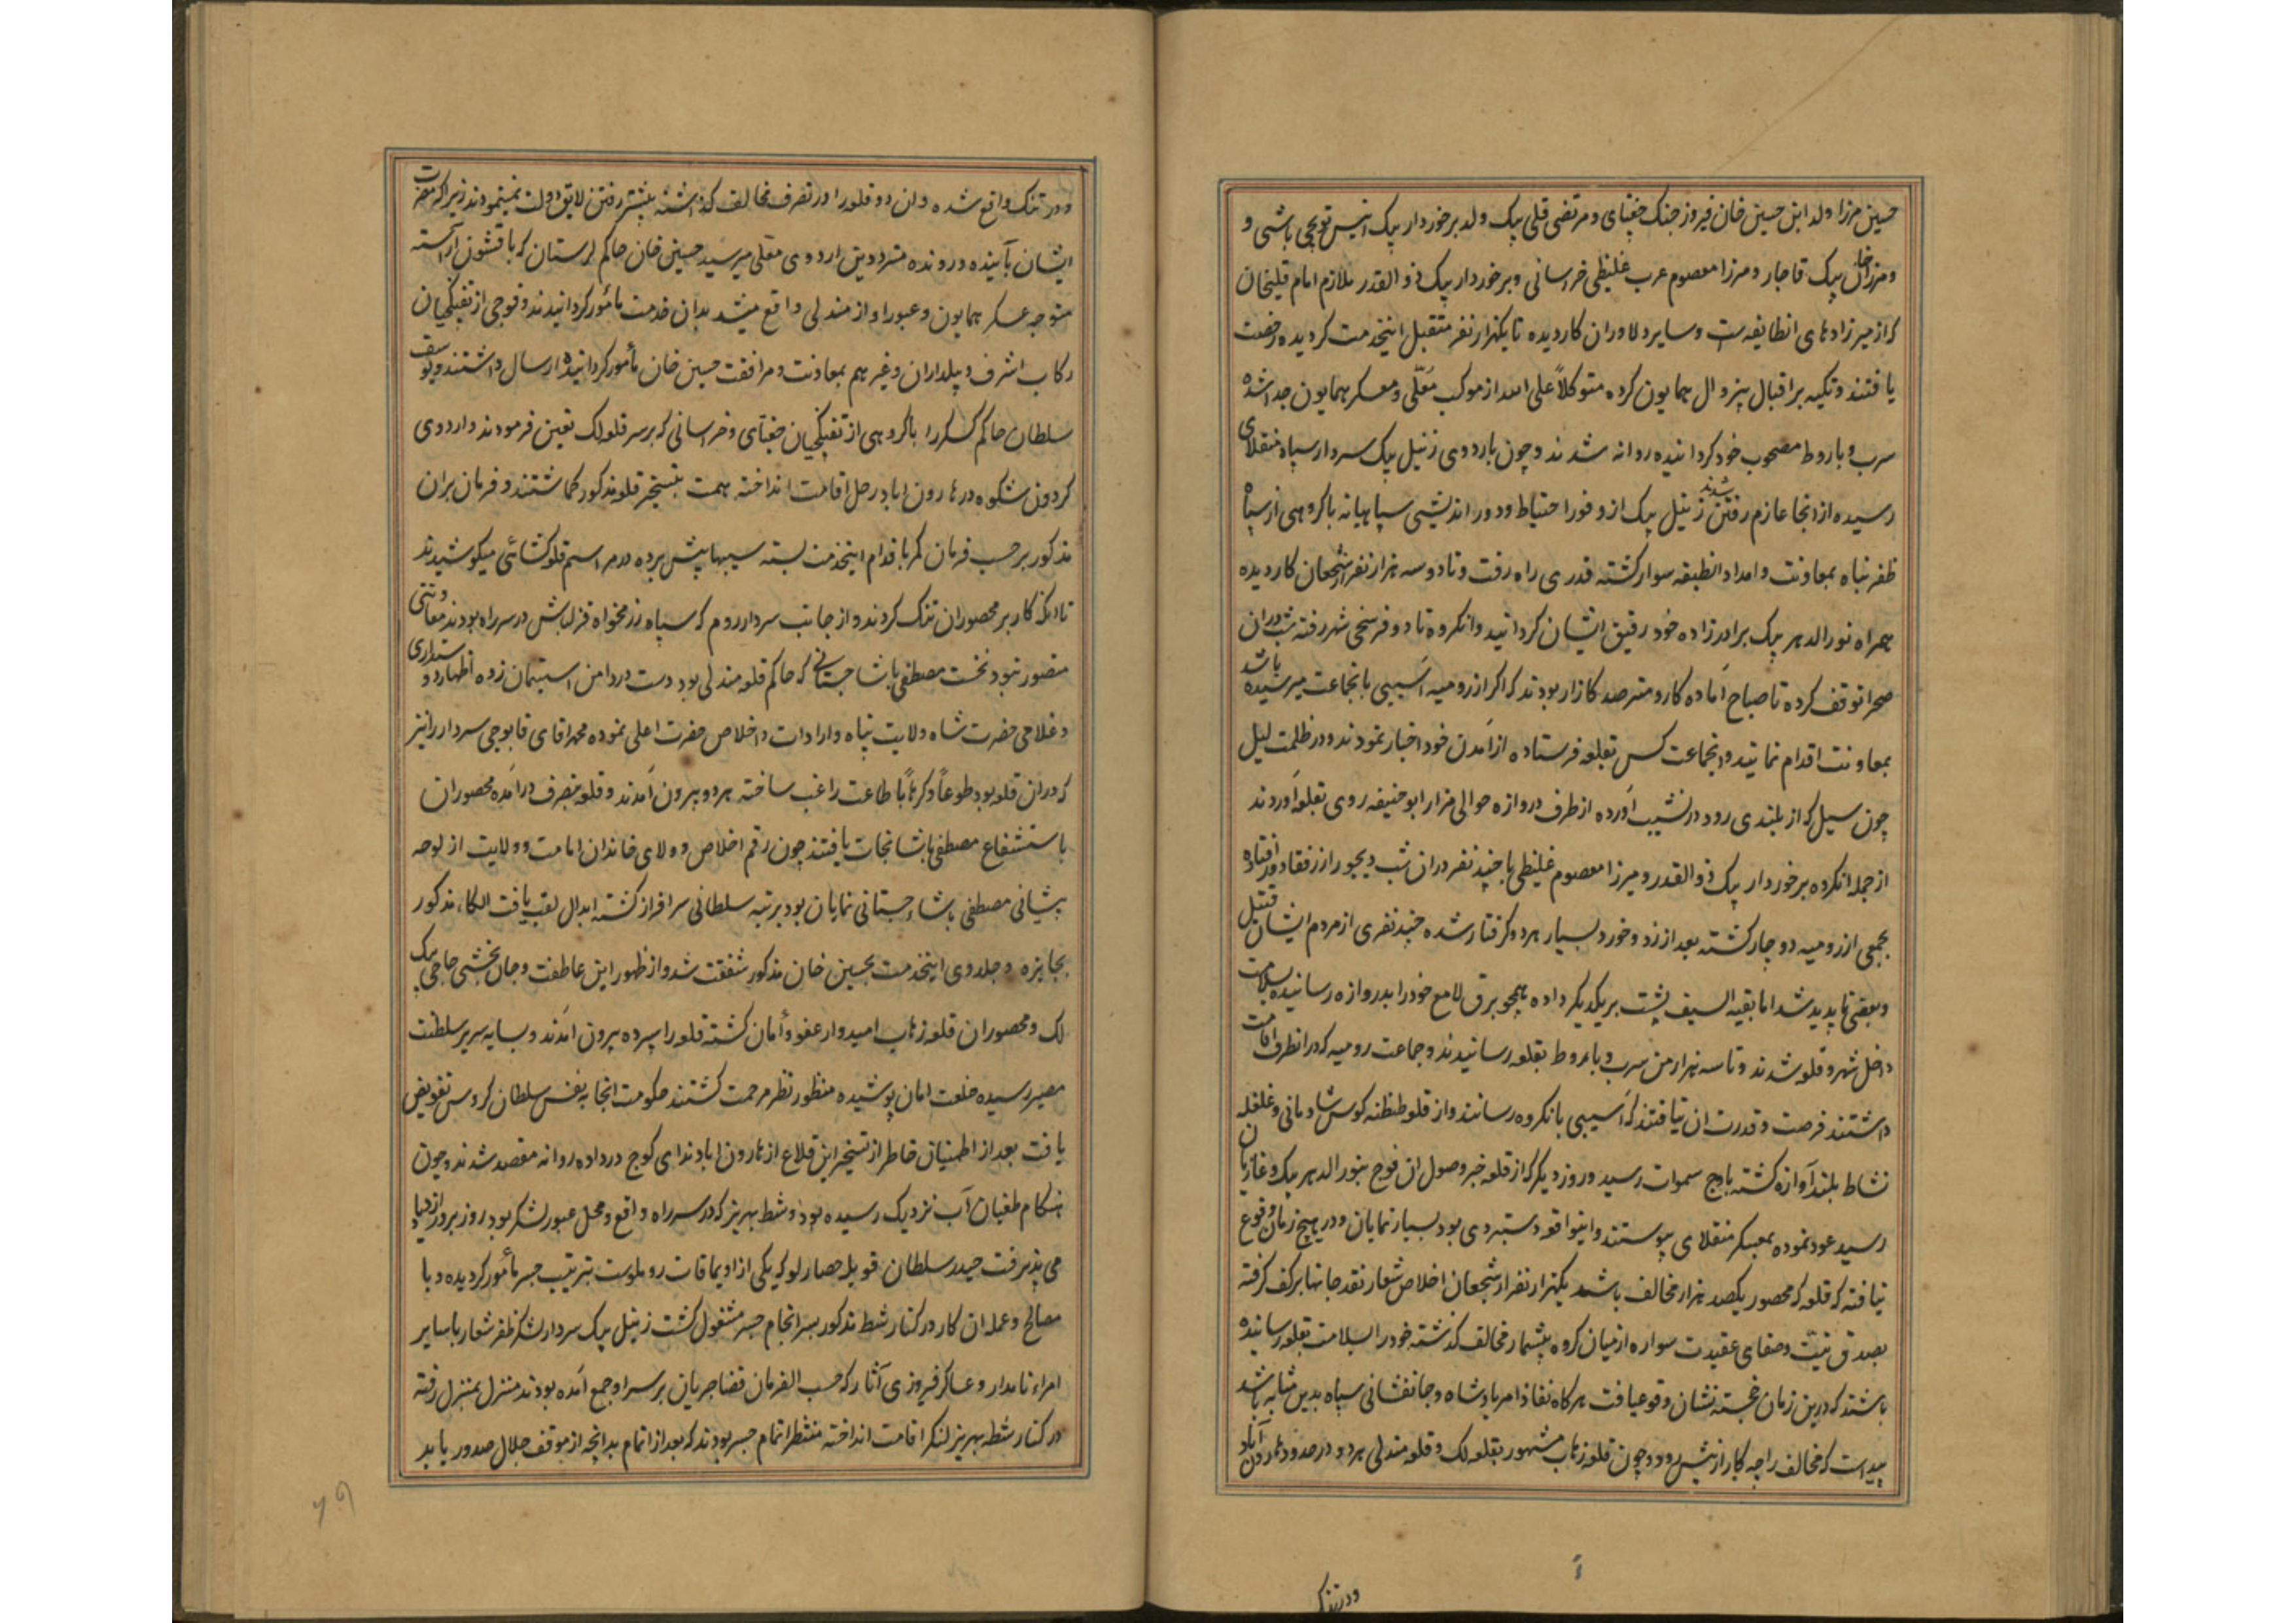 حسین مرزا ولد ابن حسین خان فیروز جنک جغتای و مرتضی قلی بیک ولد برخوردار بیک انیس توپچی باشی و
و مرزا خان بیک قاجار و مرزا معصوم عرب غلیظی خراسانی و برخوردار بیک ذوالقدر ملازم امام قلیخان
که از میرزادهای انطایفه‌ست و سایر دلاوران کاردیده تا یکهزار نفر متقبل اینخدمت کردیده رخصت
یافتند و تکیه بر اقبال بیزوال همایون کرده متوکلاً علی الله از موکب معلّی و معسکر همایون جدا شده
سرب و باروط مصحوب خود کردانیده روانه شدند و چون باردوی زنیل بیک سردار سپاه منقلای
رسیده از انجا عازم رفتن شدند زنیل بیک از وفور احتیاط و دور اندیشی سپاهیانه با کروهی از سپاه
ظفر پناه بمعاونت و امداد انطبقه سوار کشته قدری راه رفت و تا دو سه هزار نفر از شجعان کاردیده
همراه نورالدهر بیک برادرزاده خود رفیق ایشان کردانید و انکروه تا دو فرسخی شهر رفته شب دران
صحرا توقف کرده تا صباح آماده کار و مترصد کازار بودند که اکر از رومیه آسیبی بانجماعت میرسیده باشد
بمعاونت اقدام نمایند و انجماعت کس بقلعه فرستاده از آمدن خود اخبار نمودند و در ظلمت لیل
چون سیل که از بلندی رود در نشیب آورده از طرف دروازه حوالی مزار ابو حنیفه روی بقلعه آوردند
از جمله انکروه برخوردار بیک ذوالقدر و میرزا معصوم غلیظی با چند نفر دران شب دیجور از رفقا دور افتاده
بجمعی از رومیه دوچار کشته بعد از زد و خورد بسیار هر دو کرفتار شده چند نفری از مردم ایشان قتیل
و بعضی ناپدید شد اما بقیه السیف پشت بر یکدیکر داده همچو برق لامع خود را بدروازه رسانیده بسلامت
داخل شهر و قلعه شدند و تا سه هزار من سرب و باروط بقلعه رسانیدند و جماعت رومیه که در انطرف اقامت
داشتند فرصت و قدرت ان نیافتند که آسیبی بانکروه رسانند و از قلعه طنطنه کوس شادمانی و غلغله
نشاط بلند آوازه کشته باوج سموات رسید و روز دیکر که از قلعه خبر وصول ان فوج بنورالدهر بیک و غازیان
رسید عود نموده بمعسکر منقلای پیوستند و اینواقعه دستبردی بود بسیار نمایان و در هیچ زمان وقوع
نیافته که قلعه که محصور یکصد هزار مخالف باشد یکهزار نفر از شجعان اخلاص شعار نقد جانها بر کف کرفته
بصدق نیت و صفای عقیدت سواره از میان کروه بیشمار مخالف کذشته خود را بسلامت بقلعه رسانیده
باشند که درین زمان خجسته نشان وقوع یافت هرکاه نفاذ امر پادشاه و جانفشانی سپاه بدین مثابه باشد
پیداست که مخالف را چه کار از پیش رود و چون قلعه زهاب مشهور بقلعه لک و قلعه مندلی هر دو در حدود هارون آباد
و در تنک
و در تنک واقع شده و ان دو قلعه را در تصرف مخالف کذاشته پیشتر رفتن لایق دولت نمینمودند زیرا که مضرت
ایشان بآینده و رونده مترددین اردوی معلی میرسید حسین خان حاکم لرستان که با قشون آراسته
متوجه عسکر همایون و عبور او از مندلی واقع میشد بدان خدمت مأمور کردانیدند و فوجی از تفنکچیان
رکاب اشرف و بیلداران و غیرهم بمعاونت و مرافقت حسین خان مأمور کردانیده ارسال داشتند و یوسف
سلطان حاکم کسکر را با کروهی از تفنکچیان جغتای و خراسانی که بر سر قلعه لک تعیین فرمودند و اردوی
کردون شکوه در هارون اباد رحل اقامت انداخته همت بتسخیر قلعه مذکور کماشتند و فرمان بران
مذکور بر حسب فرمان کمر باقدام اینخدمت بسته سیبها پیش برده در مراسم قلعه کشائی میکوشیدند
تا انکه کار بر محصوران تنک کردند و از جانب سردار روم که سپاه رزمخواه قزلباش در سر راه بودند معاونتی
متصور نبود نخست مصطفی پاشا جستانی که حاکم قلعه مندلی بود دست در دامن استیمان زده اظهار دوستداری
و غلامی حضرت شاه ولایت پناه و ارادات و اخلاص حضرت اعلی نموده محمد اقای قاپوچی سردار را نیز
که دران قلعه بود طوعاً و کرهاً باطاعت راغب ساخته هر دو بیرون آمدند و قلعه بتصرف درآمده محصوران
باستشفاع مصطفی پاشا نجات یافتند چون رقم اخلاص و ولای خاندان امامت و ولایت از لوحه
پیشانی مصطفی پاشاء جستانی نمایان بود برتبه سلطانی سرافراز کشته ابدال لقب یافت الکاء مذکور
بجایزه و جلدوی اینخدمت بحسین خان مذکور شفقت شد و از ظهور این عاطفت و جان بخشی حاجی بیک
لک و محصوران قلعه زهاب امیدوار عفو و أمان کشته قلعه را سپرده بیرون امدند و بسایه سریر سلطنت
مصیر رسیده خلعت امان پوشیده منظور نظر مرحمت کشتند حکومت انجا بنفس سلطان کروس تفویض
یافت بعد از اطمینان خاطر از تسخیر این قلاع از هارون اباد ندای کوچ در داده روانه مقصد شدند و چون
هنکام طغیان آب نزدیک رسیده بود و شط بهریز که در سر راه واقع و محل عبور لشکر بود روز بروز ازدیاد
می پذیرفت حیدر سلطان قویله حصارلو که یکی از اویماقات روملوست بترتیب جسر مأمور کردیده و با
مصالح و عمله ان کار در کنار شط مذکور بسرانجام جسر مشغول کشت زنیل بیک سردار لشکر ظفر شعار با سایر
امراء نامدار و عساکر فیروزی آثار که حسب الفرمان قضا جریان بر سر او جمع آمده بودند منزل بمنزل رفته
در کنار شط بهریز لنکر اقامت انداخته منتظر اتمام جسر بودند که بعد از اتمام بدانچه از موقف جلال صدور یابد